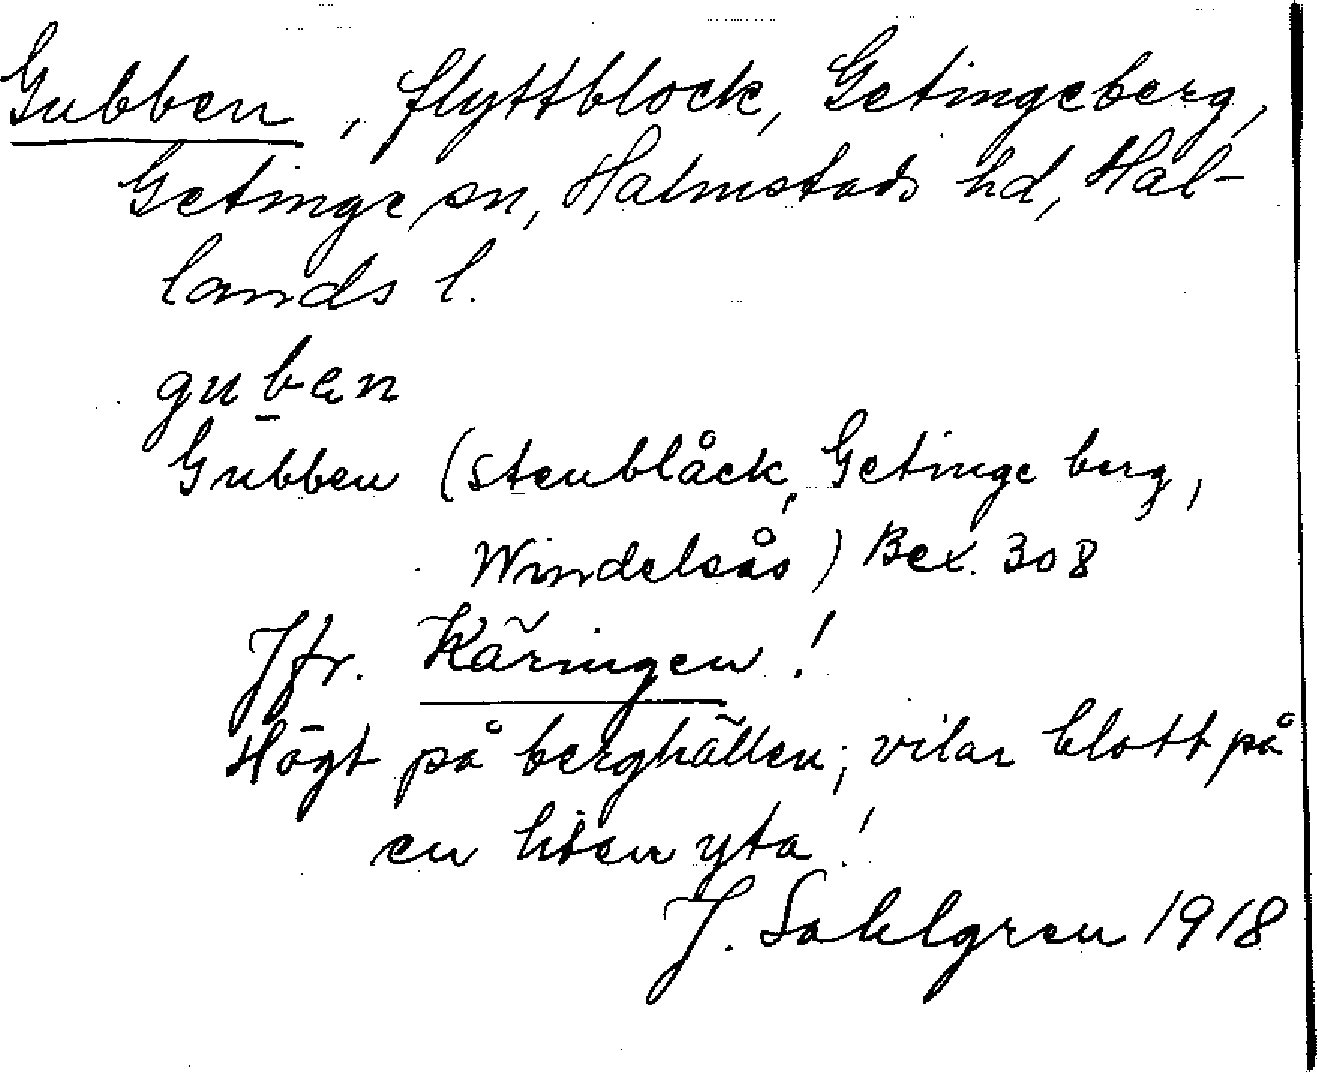 Gubben, flyttblock, Getingeberg,
Getinge sn, Halmstads hd, Hal-
lands l.
guḇen
Gubben (stenblåck, Getinge berg,
Windelsås) Bex. 308
Jfr. Käringen!
Högt på berghällen; vilar blott på
en liten yta!
J. Sahlgren 1918